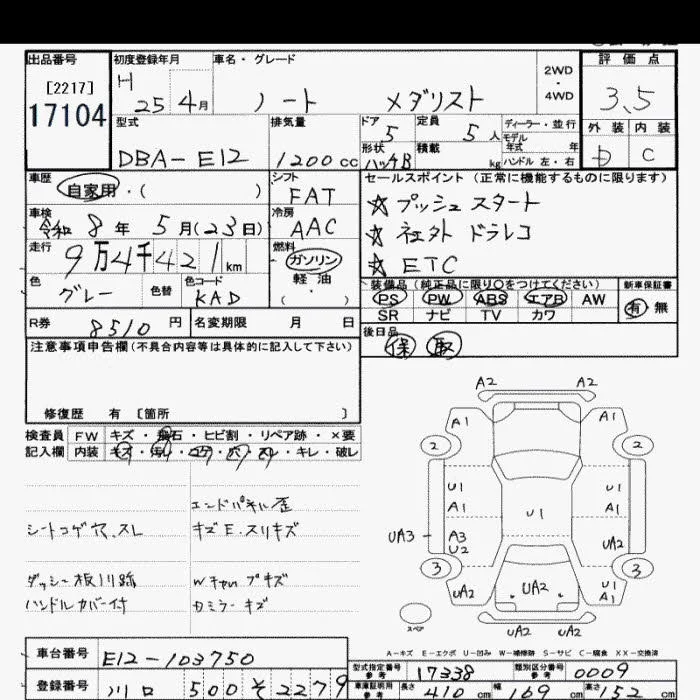 出品番号
[2217]
17104
初度登録年月
H 25 4月
車名・グレード
ノート メダリスト
2WD
・
4WD
評価点
3.5
外装 内装
D C
型式
DBA-E12
排気量
1200cc
ドア
5
定員
5人
形状
ハッチB
積載
kg
ディーラー・並行
モデル
年式 年
ハンドル 左・右
車歴
自家用・( )
シフト
FAT
セールスポイント (正常に機能するものに限ります)
☆ プッシュスタート
☆ 社外 ドラレコ
☆ ETC
車検
令和 8年 5月(23日)
冷房
AAC
走行
9万4千421km
燃料
ガソリン
軽油
(・)
色
グレー
色替
色コード
KAD
装備品(純正品に限り○をつけてください)
PS PW ABS エアB AW
SR ナビ TV カワ
新車保証書
有 無
R券
8510円
名変期限 月 日
後日品
保 取
注意事項申告欄(不具合内容等は具体的に記入して下さい)
修復歴 有 [箇所 ]
検査員 FW キズ・飛石・ヒビ割・リペア跡・×要
記入欄 内装 キズ・汚レ・コゲ・穴・スレ・キレ・破レ
エンドパネル歪
シートコゲ穴、スレ
キズE、スリキズ
ダッシュ板川跡
ハンドルカバー付
Wキャップキズ
カミラーキズ
A2 A2
A1 A1
2 2
U1 U1
A1 U1 A1
UA3 A3 U2 UA2
3 3
UA2 UA2 U1 A1
スペア
UA2 UA2
A-キズ E-エクボ U-凹み W-補修跡 S-サビ C-腐食 XX-交換済
車台番号
E12-103750
型式指定番号
参考
17338
類別区分番号
参考
0009
登録番号
川口 500 そ 2279
車庫証明用
参考
長さ 410cm 幅 169cm 高さ 152cm